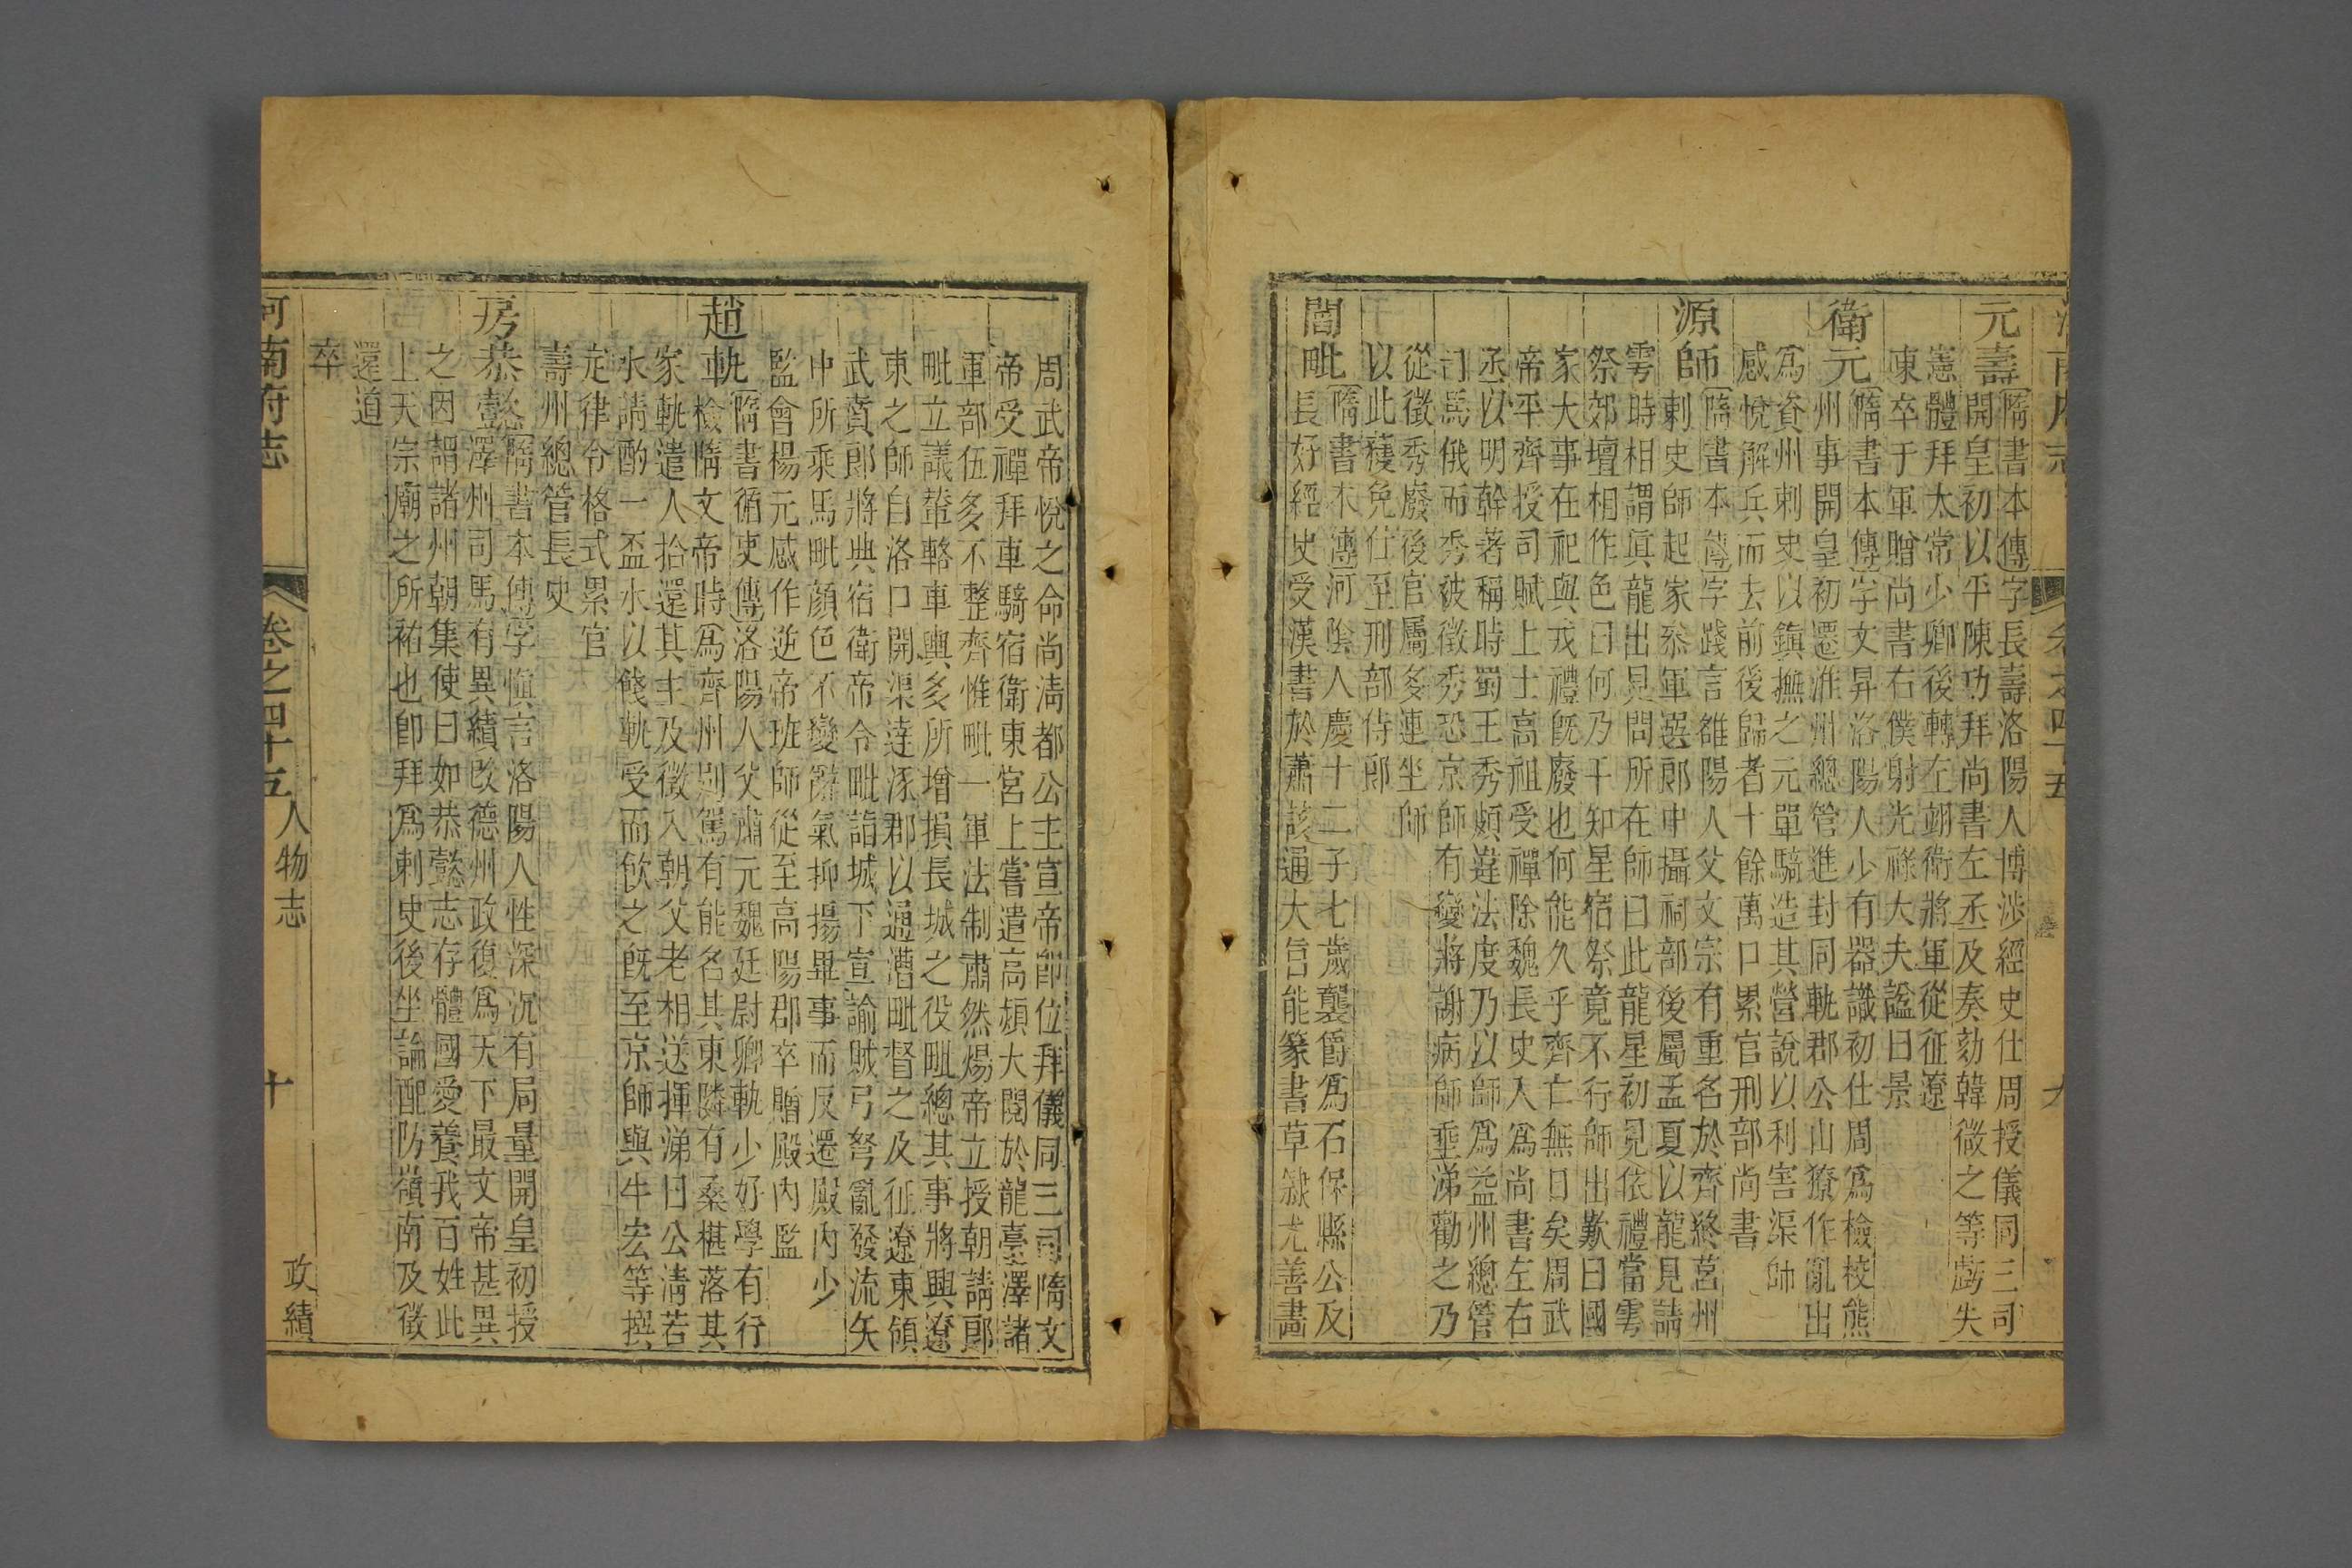 元壽
隋書本傳字長壽洛陽人博涉經史仕周授儀同三司
開皇初以平陳功拜尚書左丞及奏劾韓微之等劾失
憲體拜太常少卿後轉左翊衛將軍從征遼
東卒于軍贈尚書右僕射光祿大夫諡曰景
衛元
隋書本傳字文昇洛陽人少有器識初仕周爲檢校熊
州事開皇初遷淮州總管進封同軌郡公山獠作亂出
爲資州刺史以鎮撫之元單騎造其營說以利害渠帥
感悅解兵而去前後歸者十餘萬口累官刑部尚書
源師
隋書本傳字踐言雒陽人父文宗有重名於齊終莒州
刺史師起家叅軍選郎中攝祠部後屬孟夏以龍見請
雩時相謂眞龍出見問所在師曰此龍星初見依禮當雩
祭郊壇相作色曰何乃干知星宿祭竟不行師出歎曰國
家大事在祀與戎禮旣廢也何能久乎齊亡無日矣周武
帝平齊授司賦上士高祖受禪除魏長史入爲尚書左右
丞以明幹著稱時蜀王秀頗違法度乃以師爲益州總管
司馬俄而秀被徵秀恐京師有變將謝病師垂涕勸之乃
從徵秀廢後官屬多連坐師
以此獲免仕至刑部侍郎
閻毗
隋書本傳河陰人慶十二子七歲襲爵爲石保縣公及
長好經史受漢書於蕭該通大旨能篆書草隸尤善畫
周武帝悅之命尚淸都公主宣帝卽位拜儀同三司隋文
帝受禪拜車騎宿衛東宮上嘗遣高熲大閱於龍臺澤諸
軍部伍多不整齊惟毗一軍法制肅然煬帝立授朝請郎
毗立議輦輅車輿多所增損長城之役毗總其事將興遼
東之師自洛口開渠達涿郡以通漕毗督之及征遼東領
武賁郎將典宿衛帝令毗詣城下宣諭賊弓弩亂發流矢
中所乘馬毗顔色不變辭氣抑揚畢事而反遷殿內少
監會楊元感作逆帝班師從至高陽郡卒贈殿內監
趙軌
隋書循吏傳洛陽人父肅元魏廷尉卿軌少好學有行
檢隋文帝時爲齊州別駕有能名其東隣有桑椹落其
家軌遣人拾還其主及徵入朝父老相送揮涕曰公淸若
水請酌一盃水以餞軌受而飮之旣至京師與牛宏等撰
定律令格式累官
壽州總管長史
房恭懿
隋書本傳字愼言洛陽人性深沉有局量開皇初授
澤州司馬有異績改德州政復爲天下最文帝甚異
之因謂諸州朝集使曰如恭懿志存體國愛養我百姓此
上天宗廟之所祐也卽拜爲刺史後坐論配防嶺南及徵
還道
卒
河南府志
卷之四十五
人物志
十
政績